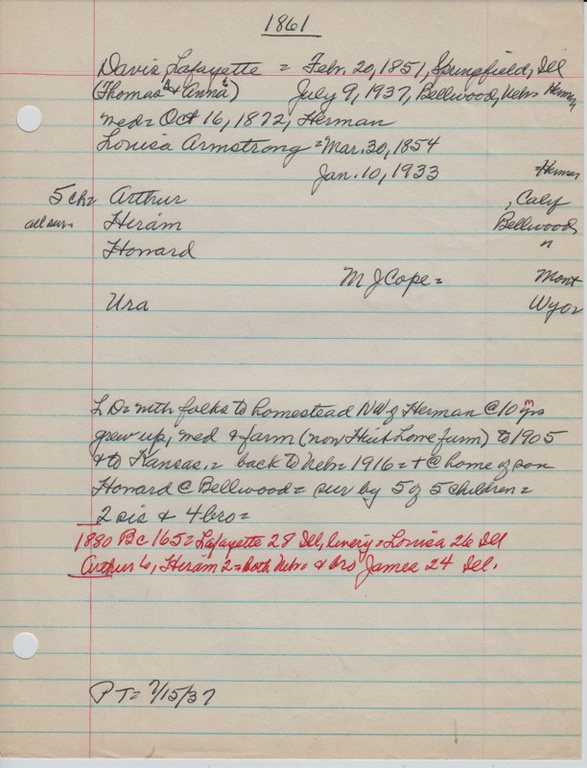 1861
Davis, Lafayette = Febr. 20, 1851, Springfield, Ill
(Thomas B & Anna b) July 9, 1937, Bellwood, Nebr= Herman
med= Oct 16, 1872, Herman
Louisa Armstrong = Mar. 30, 1854
Jan. 10, 1933 =Herman
5 ch= Arthur , Calif
all surv Hiram Bellwood
Howard "
M J Cope = Mont
Ura Wyo=
L D= with folks to homestead NW of Herman @ 10 yrs
grew up, med & farm (now Lowe farm) to 1905
& to Kansas.= back to Nebr= 1916= + @ home of son
Howard @ Bellwood= sur by 5 of 5 children=
2 sis & 4 bro=
1880 Bc 165= Lafayette 28 Ill, livery= Louisa 26 Ill
Arthur 6, Hiram 2= both Nebr= & bro James 24 Ill.
PT= 7/15/37